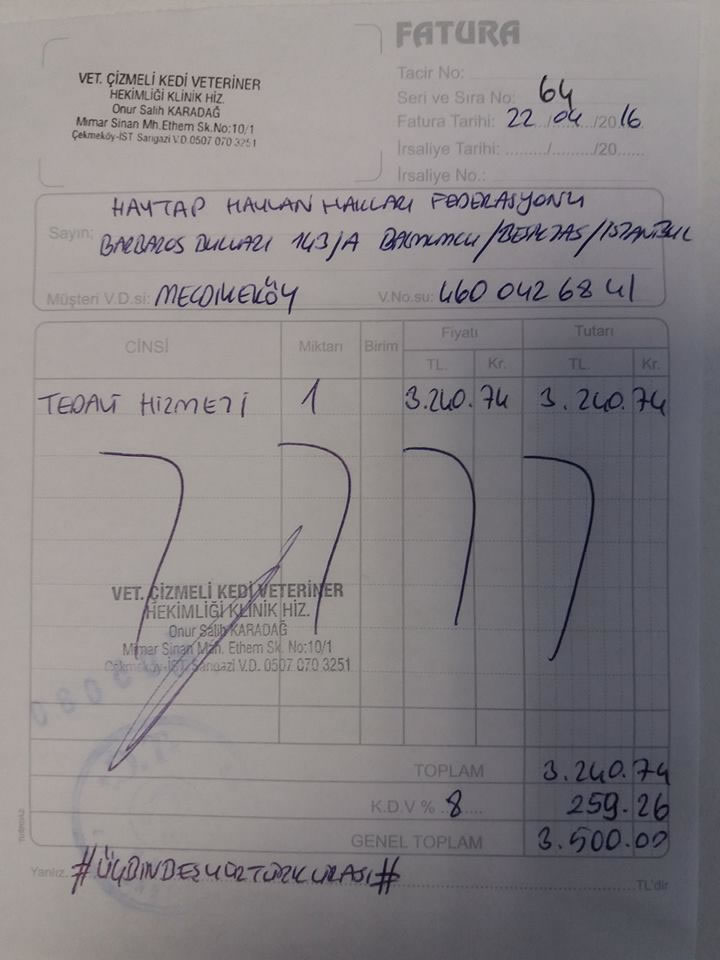 FATURA
VET. ÇİZMELİ KEDİ VETERİNER
HEKİMLİĞİ KLİNİK HİZ.
Onur Salih KARADAĞ
Mimar Sinan Mh. Ethem Sk. No:10/1
Çekmeköy-İST Sarıgazi V.D. 0507 070 3251
Tacir No:
Seri ve Sıra No: 64
Fatura Tarihi: 22/04/2016
İrsaliye Tarihi: ......../......../20......
İrsaliye No.:
HAYTAP HAYVAN HAKLARI FEDERASYONU
Sayın: BARBAROS BULVARI 143/A BALMUMCU/BEŞİKTAŞ/İSTANBUL
Müşteri V.D.si: MECİDİYEKÖY V.No.su: 460 042 68 41
CİNSİ Miktarı Birim Fiyatı Tutarı
TL. Kr. TL. Kr.
TEDAVİ HİZMETİ 1 3.240.74 3.240.74
VET. ÇİZMELİ KEDİ VETERİNER
HEKİMLİĞİ KLİNİK HİZ.
Onur Salih KARADAĞ
Mimar Sinan Mah. Ethem Sk. No:10/1
Çekmeköy-İST Sarıgazi V.D. 0507 070 3251
TOPLAM 3.240.74
K.D.V % 8 259.26
GENEL TOPLAM 3.500.00
Yanlız. #ÜÇBİNBEŞYÜZTÜRKLİRASI# TL'dir